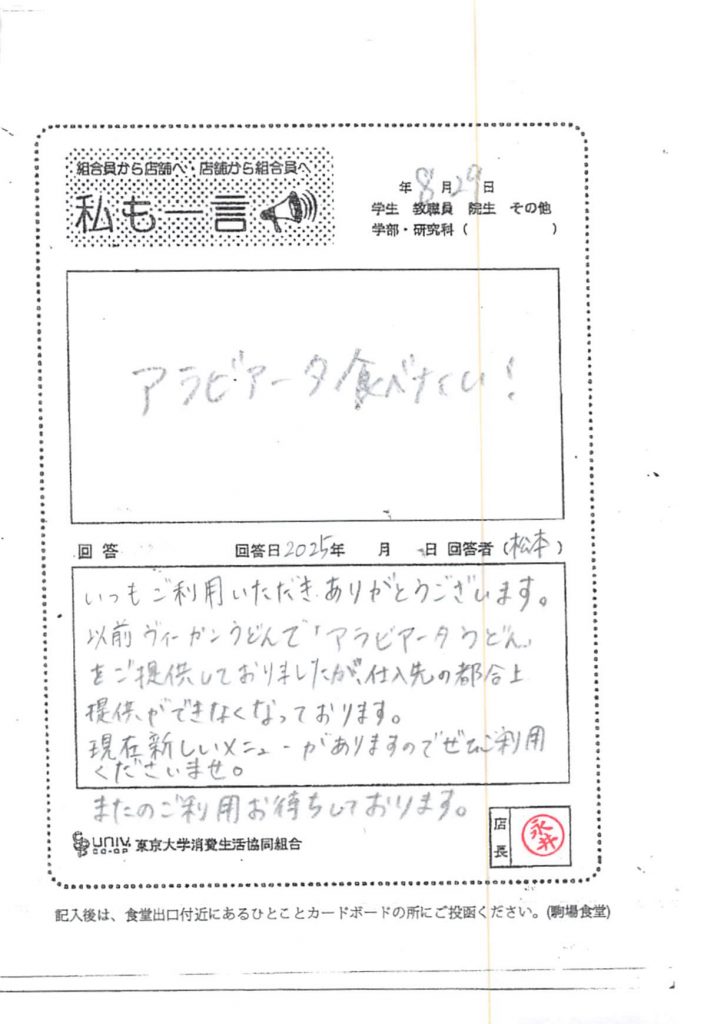 組合員から店舗へ・店舗から組合員へ
私も一言
年 8 月 29 日
学生 教職員 院生 その他
学部・研究科 ( )
アラビアータ食べたい!
回答 回答日 2025年 月 日 回答者 (松本)
いつもご利用いただきありがとうございます。
以前ヴィーガンうどんで「アラビアータうどん」
をご提供しておりましたが、仕入先の都合上
提供ができなくなっております。
現在新しいメニューがありますのでぜひご利用
くださいませ。
またのご利用お待ちしております。
UNIV. CO-OP 東京大学消費生活協同組合
店長 永井
記入後は、食堂出口付近にあるひとことカードボードの所にご投函ください。(駒場食堂)